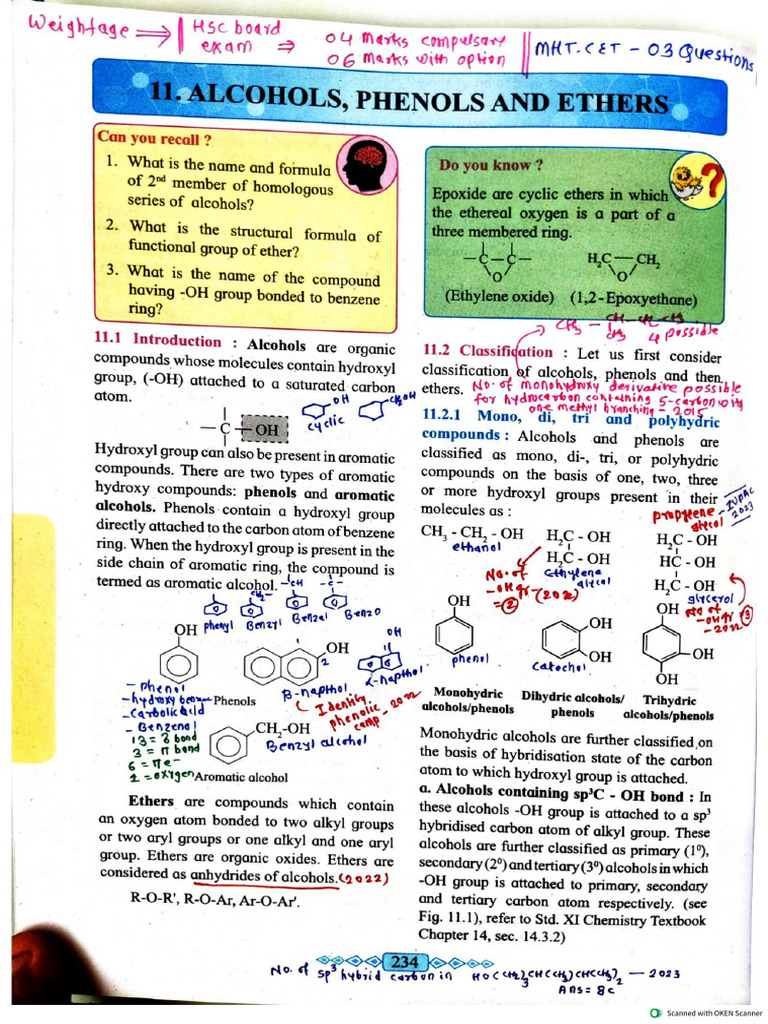 Weightage ⇒ HSC board exam ⇒ 04 Marks compulsary
06 Marks with option
MHT-CET - 03 Questions
11. ALCOHOLS, PHENOLS AND ETHERS
Can you recall ?
1. What is the name and formula
of 2nd member of homologous
series of alcohols?
2. What is the structural formula of
functional group of ether?
3. What is the name of the compound
having -OH group bonded to benzene
ring?
11.1 Introduction : Alcohols are organic
compounds whose molecules contain hydroxyl
group, (-OH) attached to a saturated carbon
atom.
OH
CH2OH
cyclic
– C – OH
Hydroxyl group can also be present in aromatic
compounds. There are two types of aromatic
hydroxy compounds: phenols and aromatic
alcohols. Phenols contain a hydroxyl group
directly attached to the carbon atom of benzene
ring. When the hydroxyl group is present in the
side chain of aromatic ring, the compound is
termed as aromatic alcohol.
phenyl Benzyl Benzal Benzo
OH
OH
OH
1
2
- Phenol
- hydroxy benzene
- Carbolic Acid
- Benzenol
13 = σ bond
3 = π bond
6 = πe-
2 = oxygen
Phenols
β-napthol
α-napthol
Identify phenolic comp - 2022
CH2-OH
Benzyl alcohol
Aromatic alcohol
Ethers are compounds which contain
an oxygen atom bonded to two alkyl groups
or two aryl groups or one alkyl and one aryl
group. Ethers are organic oxides. Ethers are
considered as anhydrides of alcohols. (2022)
R-O-R', R-O-Ar, Ar-O-Ar'.
Do you know ?
Epoxide are cyclic ethers in which
the ethereal oxygen is a part of a
three membered ring.
– C – C –
O
H2C — CH2
O
(Ethylene oxide) (1,2-Epoxyethane)
CH3 - CH - CH2 CH3
CH3
4 possible
11.2 Classification : Let us first consider
classification of alcohols, phenols and then
ethers.
No. of monohydroxy derivative possible
for hydrocarbon containing 5-carbon with
one methyl branching - 2015
11.2.1 Mono, di, tri and polyhydric
compounds : Alcohols and phenols are
classified as mono, di-, tri, or polyhydric
compounds on the basis of one, two, three
or more hydroxyl groups present in their
molecules as :
propylene glycol
IUPAC 2023
CH3 - CH2 - OH
ethanol
H2C - OH
H2C - OH
Ethylene glycol
No. of -OH gr - (2022) = 2
H2C - OH
HC - OH
H2C - OH
glycerol
No of -OH gr = 3 - 2022
OH
phenol
OH
OH
catechol
OH
OH
OH
Monohydric alcohols/phenols
Dihydric alcohols/ phenols
Trihydric alcohols/phenols
Monohydric alcohols are further classified on
the basis of hybridisation state of the carbon
atom to which hydroxyl group is attached.
a. Alcohols containing sp3C - OH bond : In
these alcohols -OH group is attached to a sp3
hybridised carbon atom of alkyl group. These
alcohols are further classified as primary (1⁰),
secondary (2⁰) and tertiary (3⁰) alcohols in which
-OH group is attached to primary, secondary
and tertiary carbon atom respectively. (see
Fig. 11.1), refer to Std. XI Chemistry Textbook
Chapter 14, sec. 14.3.2)
234
No. of sp3 hybrid carbon in HO(CH2)3CH(CH3)CH(CH3)2 — 2023
Ans = 8c
Scanned with OKEN Scanner